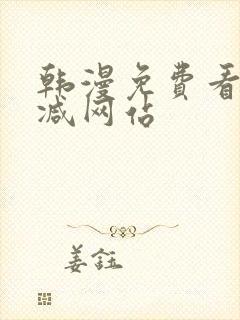 韩漫免费看
减网佔
姜鈺